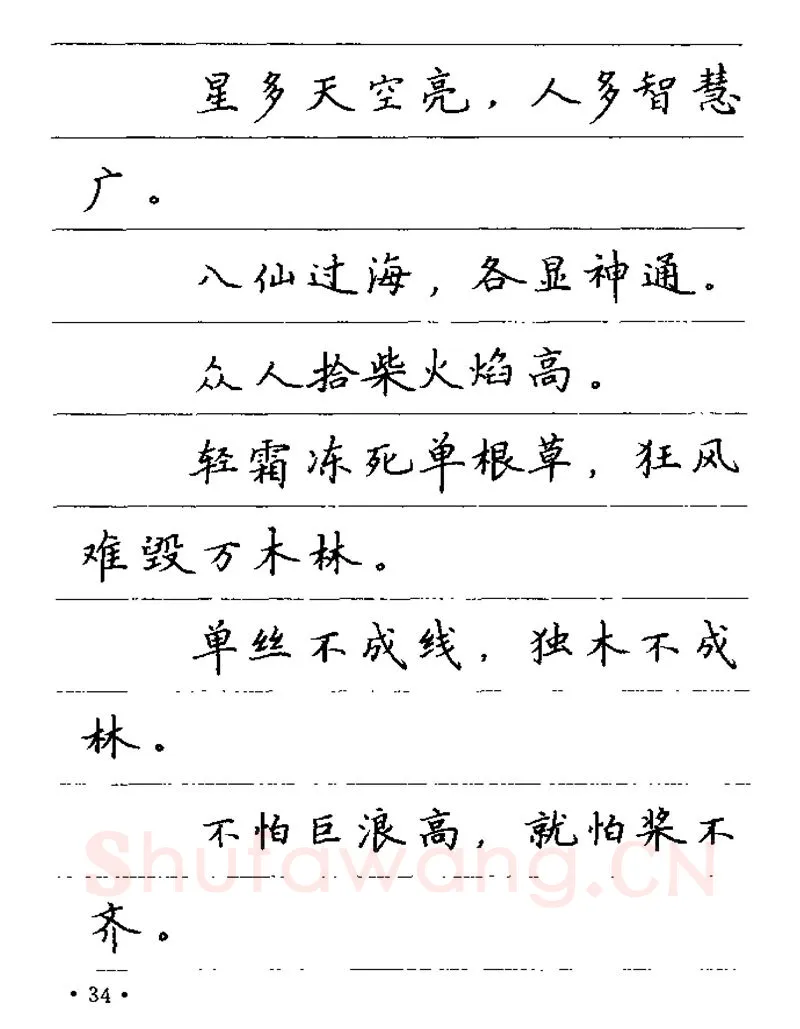 星多天空亮，人多智慧
广。
八仙过海，各显神通。
众人拾柴火焰高。
轻霜冻死单根草，狂风
难毁万木林。
单丝不成线，独木不成
林。
不怕巨浪高，就怕桨不
Shufawang.CN
齐。
·34·